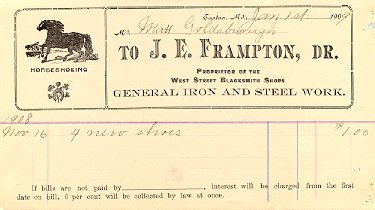 Easton, Md., Jan 1st 1909
Mr Matt Goldsborough
TO J. E. FRAMPTON, DR.
HORSESHOEING
PROPRIETOR OF THE
WEST STREET BLACKSMITH SHOPS
GENERAL IRON AND STEEL WORK.
1908
Nov. 16 4 new shoes $1.00
If bills are not paid by____________, interest will be charged from the first
date on bill. 6 per cent will be collected by law at once.